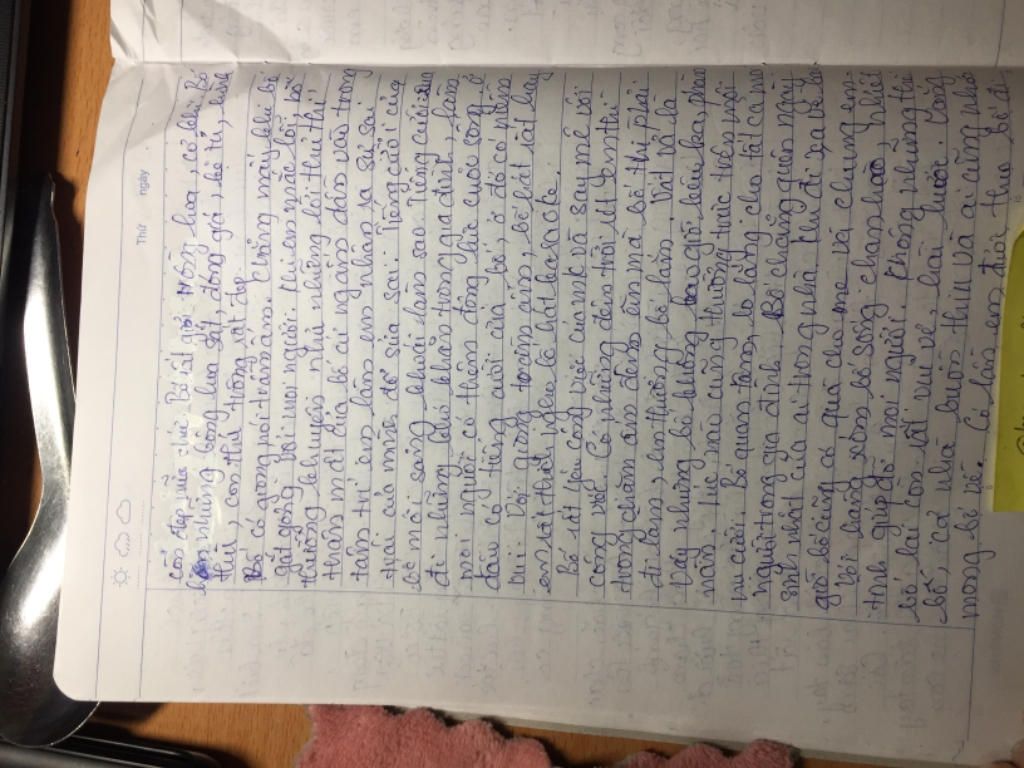 Thứ ngày
còn đẹp nữa chứ. Bố rất giỏi trồng hoa, có lần bố
những bông hoa sắt, dòng giá, bồ tử, hoa
thu, con thỏ trông rất đẹp.
Bố có giọng nói trầm ấm. Chẳng mấy khi bố
gắt gỏng với mọi người. Khi em mắc lỗi, bố
thường bị khuyên nhủ những lời tâm thư,
thấm m ắt của bố cứ ngấm dần vào trong
tâm trí em làm em nhận ra sự sai
trái của mình để sửa sai. Tiếng cười cùng
bố mới sảng khoái làm sao. Tiếng cười xua
đi những khó khăn trong gia đình, làm
mọi người có thêm động lực cuộc sống. Ở
đâu có tiếng cười của bố, ở đó có niềm
vui. Với giọng trầm ấm, bố hát rất hay
em rất thích nghe bố hát karaoke.
Bố rất yêu công việc của mình và say mê với
công việc. Có những đêm trời rét 4 am thì
trong chăn ấm đệm êm mà bố thì phải
đi làm, em thương bố lắm. Vất vả là
vậy nhưng bố không bao giờ kêu ca, phàn
nàn, lúc nào cũng thường trực trên môi
nụ cười. Bố quan tâm, lo lắng cho tất cả mọi
người trong gia đình. Bố chẳng quên ngày
sinh nhật của ai trong nhà, khi đi xa về bao
giờ bố cũng có quà cho mẹ và chúng em.
Với hàng xóm bố sống chan hoà, nhiệt
tình giúp đỡ mọi người. Không những thế
bố lại còn rất vui vẻ, hài hước. Vắng
bố, cả nhà buồn thiu và ai cũng nhớ
mong bố về. Có lần em được thu, bé đi